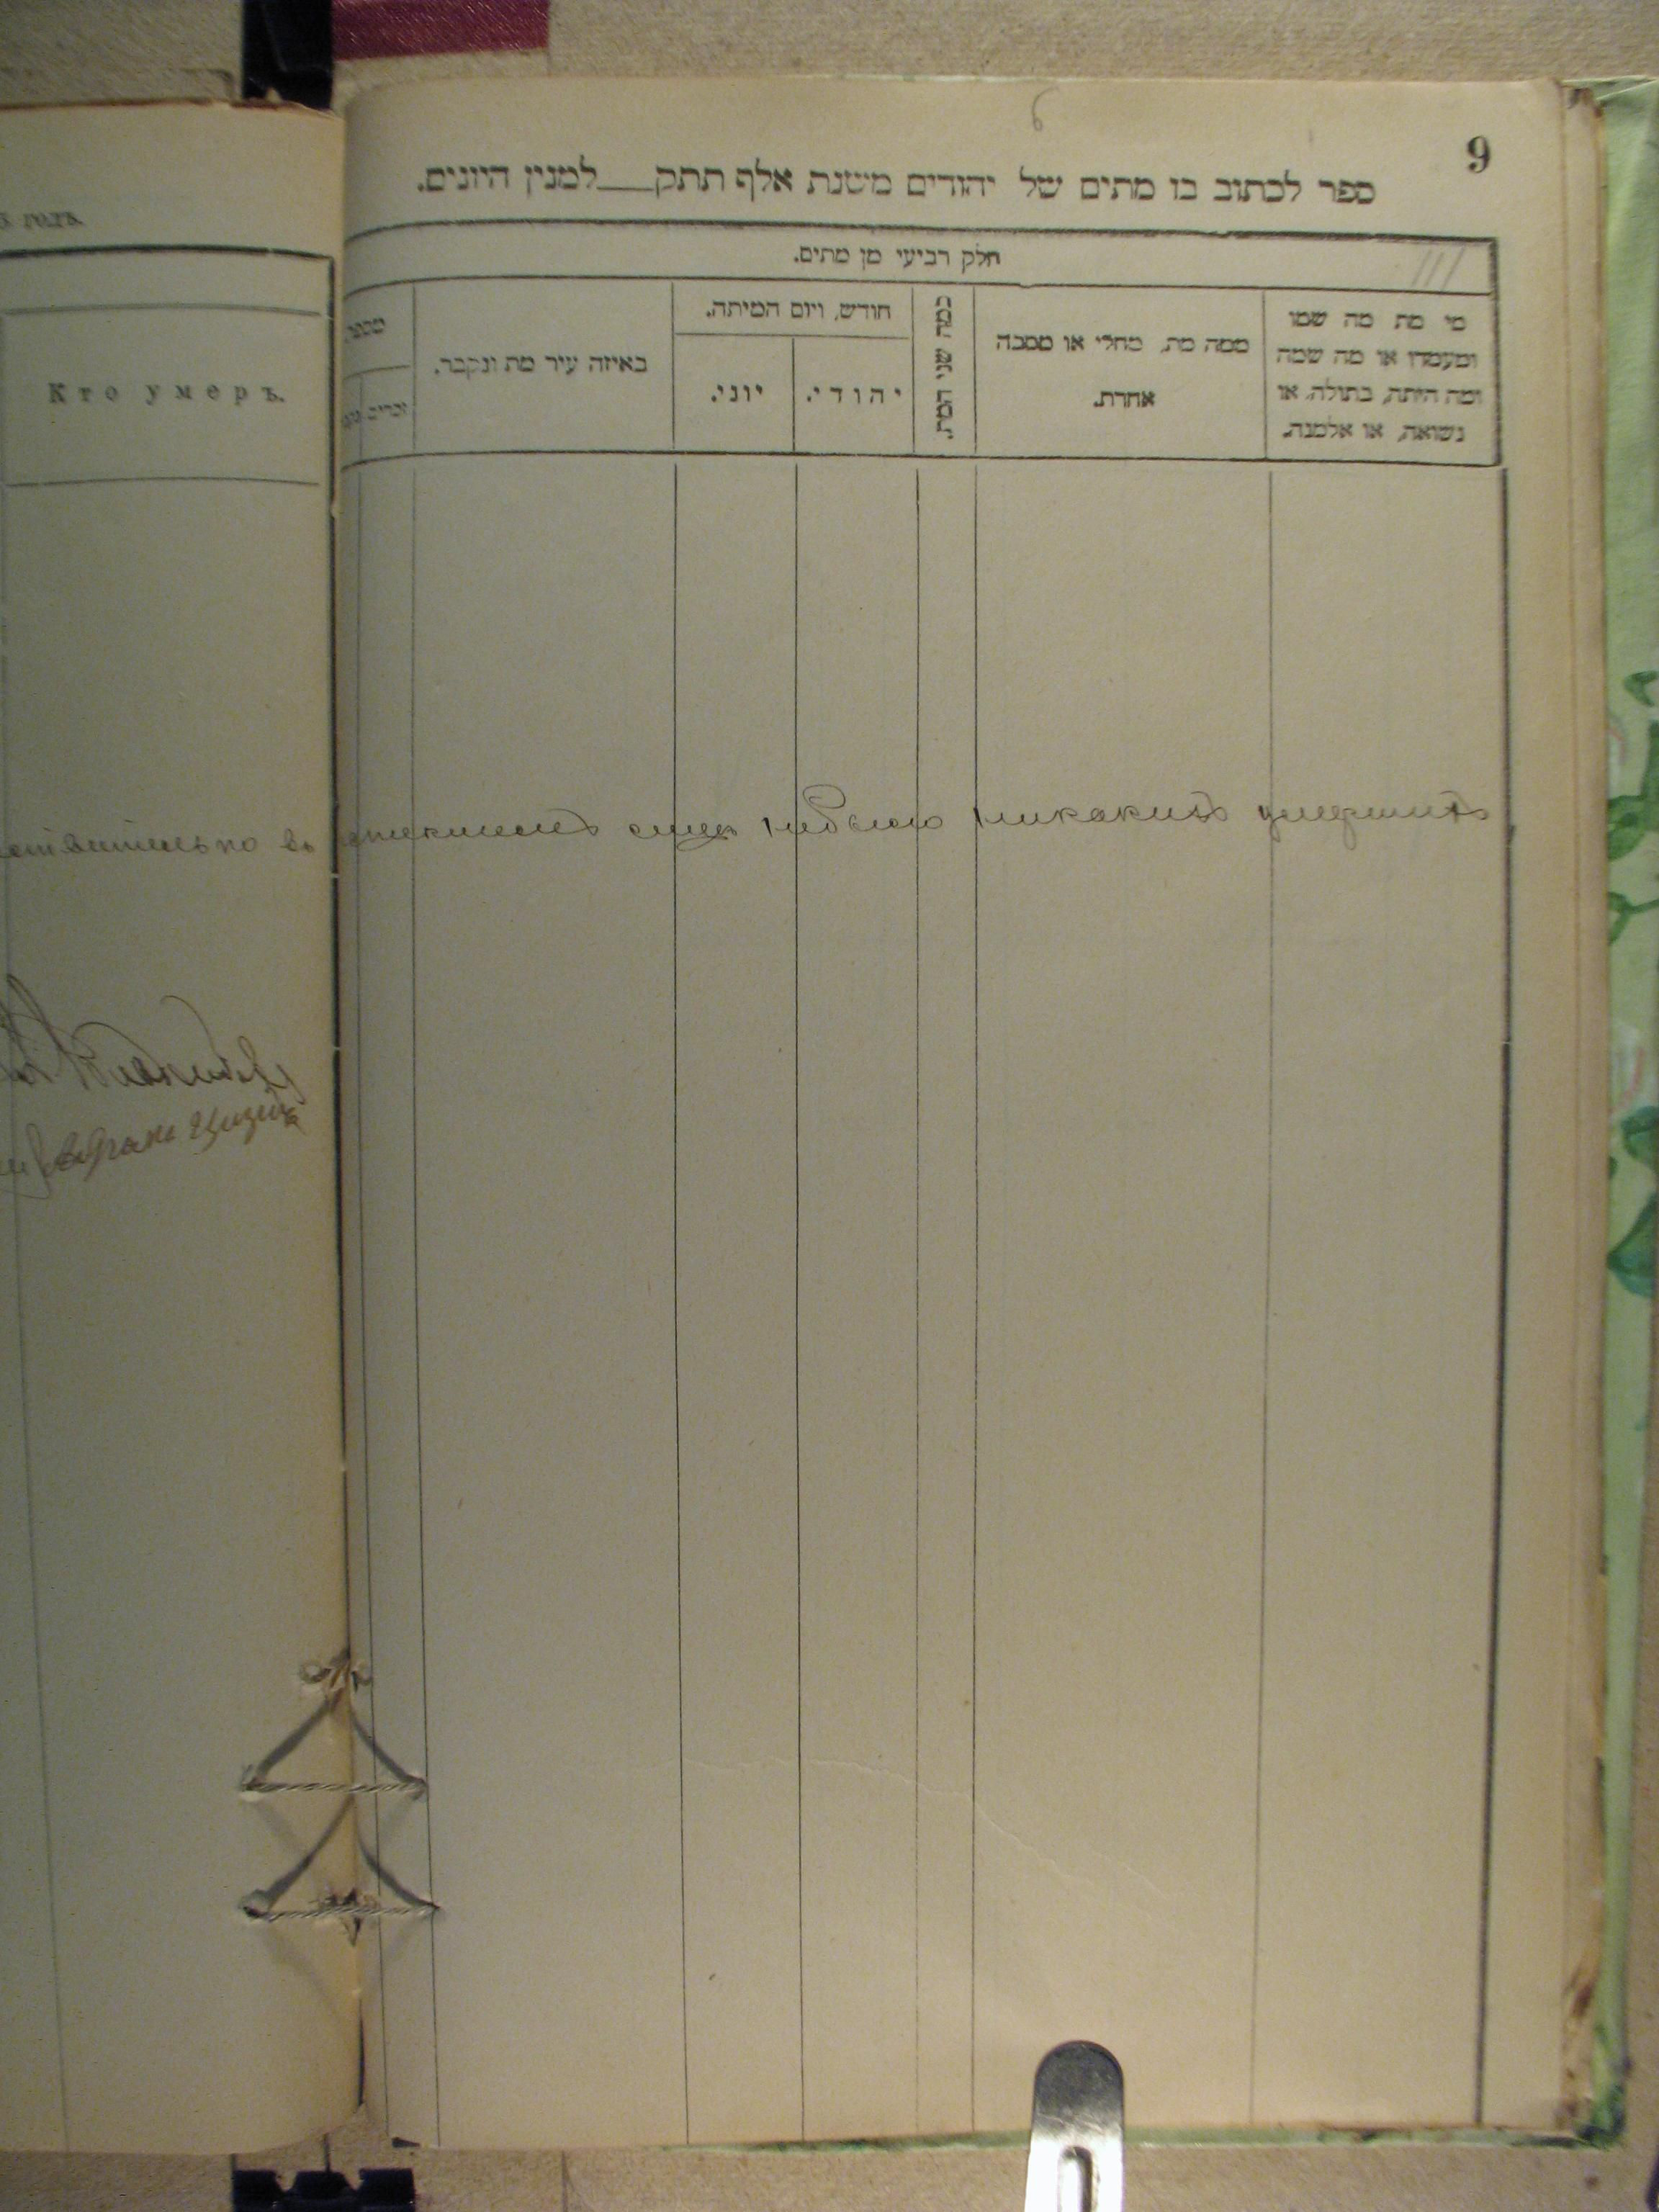 ъ годъ.
Кто умеръ.
9
6
ספר לכתוב בו מתים של יהודים משנת אלף תתק__למנין היונים.
חלק רביעי מן מתים.
מי מת מה שמו
ומעמדו או מה שמה
ומה היתה, בתולה, או
נשואה, או אלמנה.
ממה מת, מחלי או מסבה
אחרת.
כמה שני המת.
חודש, ויום המיתה.
יהודי.
יוני.
באיזה עיר מת ונקבר.
מספר
זכרים
въ небыло никакихъ умершихъ